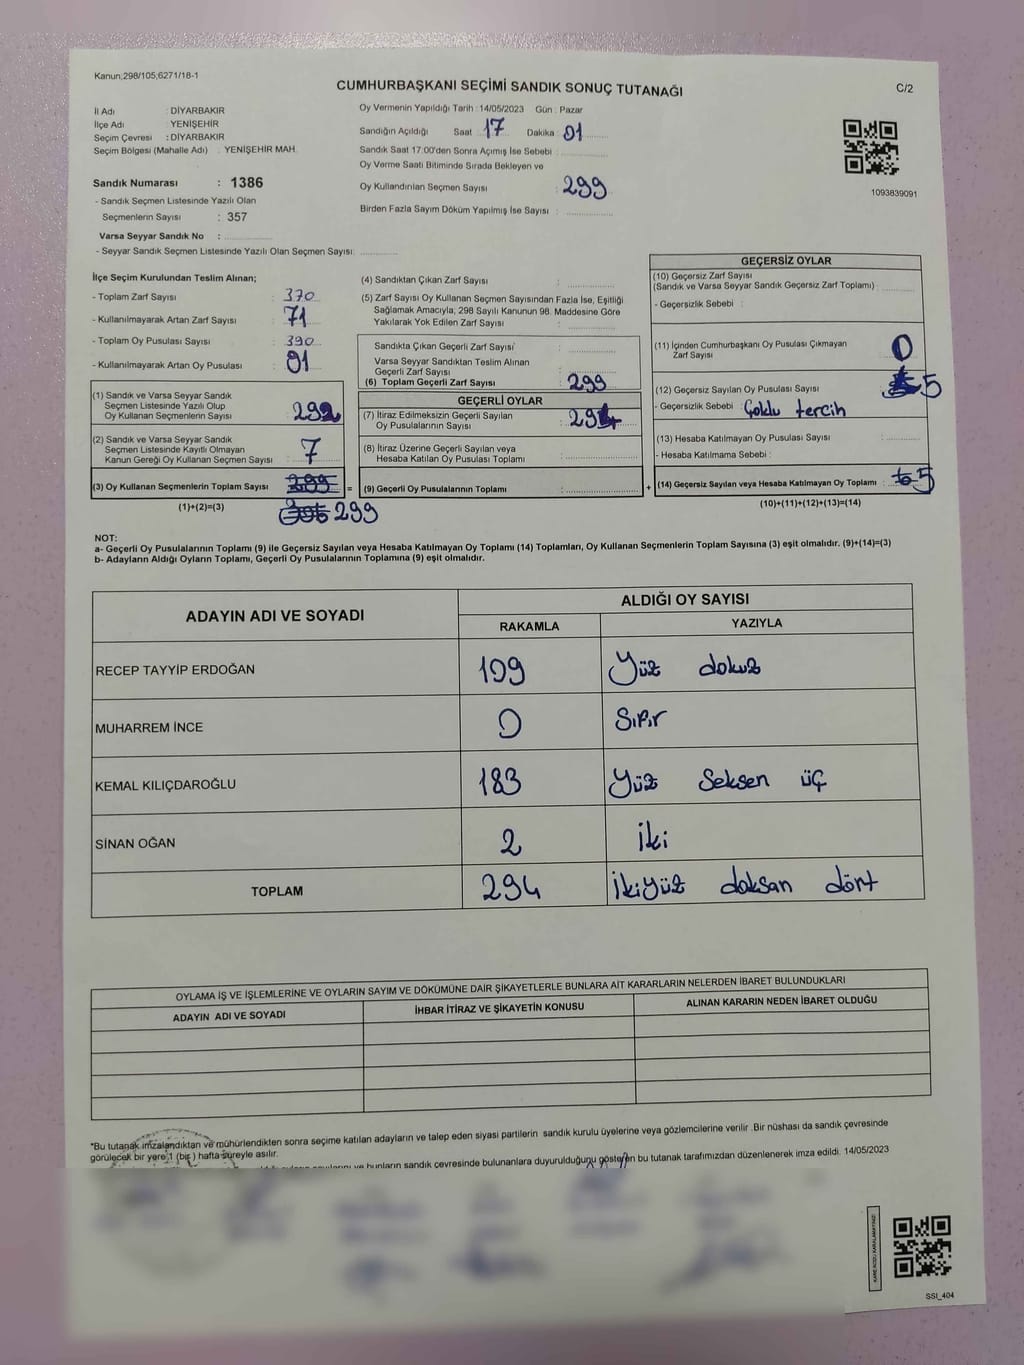 Kanun;298/105,6271/18-1
CUMHURBAŞKANI SEÇİMİ SANDIK SONUÇ TUTANAĞI
C/2
İl Adı : DİYARBAKIR
İlçe Adı : YENİŞEHİR
Seçim Çevresi : DİYARBAKIR
Seçim Bölgesi (Mahalle Adı) : YENİŞEHİR MAH.
Sandık Numarası : 1386
- Sandık Seçmen Listesinde Yazılı Olan
Seçmenlerin Sayısı : 357
Varsa Seyyar Sandık No :
- Seyyar Sandık Seçmen Listesinde Yazılı Olan Seçmen Sayısı:
Oy Vermenin Yapıldığı Tarih : 14/05/2023 Gün : Pazar
Sandığın Açıldığı Saat 17 Dakika : 01
Sandık Saat 17:00'den Sonra Açımış İse Sebebi :
Oy Verme Saati Bitiminde Sırada Bekleyen ve
Oy Kullandırılan Seçmen Sayısı : 299
Birden Fazla Sayım Döküm Yapılmış İse Sayısı :
1093839091
İlçe Seçim Kurulundan Teslim Alınan;
- Toplam Zarf Sayısı : 370
- Kullanılmayarak Artan Zarf Sayısı : 71
- Toplam Oy Pusulası Sayısı : 390
- Kullanılmayarak Artan Oy Pusulası : 91
(1) Sandık ve Varsa Seyyar Sandık
Seçmen Listesinde Yazılı Olup
Oy Kullanan Seçmenlerin Sayısı : 292
(2) Sandık ve Varsa Seyyar Sandık
Seçmen Listesinde Kayıtlı Olmayan
Kanun Gereği Oy Kullanan Seçmen Sayısı : 7
(3) Oy Kullanan Seçmenlerin Toplam Sayısı : 299 =
(1)+(2)=(3) 299
(4) Sandıktan Çıkan Zarf Sayısı :
(5) Zarf Sayısı Oy Kullanan Seçmen Sayısından Fazla İse, Eşitliği
Sağlamak Amacıyla, 298 Sayılı Kanunun 98. Maddesine Göre
Yakılarak Yok Edilen Zarf Sayısı :
Sandıkta Çıkan Geçerli Zarf Sayısı :
Varsa Seyyar Sandıktan Teslim Alınan
Geçerli Zarf Sayısı :
(6) Toplam Geçerli Zarf Sayısı : 299
GEÇERLİ OYLAR
(7) İtiraz Edilmeksizin Geçerli Sayılan
Oy Pusulalarının Sayısı : 294
(8) İtiraz Üzerine Geçerli Sayılan veya
Hesaba Katılan Oy Pusulası Toplamı :
(9) Geçerli Oy Pusulalarının Toplamı : +
GEÇERSİZ OYLAR
(10) Geçersiz Zarf Sayısı
(Sandık ve Varsa Seyyar Sandık Geçersiz Zarf Toplamı) :
- Geçersizlik Sebebi :
(11) İçinden Cumhurbaşkanı Oy Pusulası Çıkmayan
Zarf Sayısı : 0
(12) Geçersiz Sayılan Oy Pusulası Sayısı : 5
- Geçersizlik Sebebi : Çoklu tercih
(13) Hesaba Katılmayan Oy Pusulası Sayısı :
- Hesaba Katılmama Sebebi :
(14) Geçersiz Sayılan veya Hesaba Katılmayan Oy Toplamı : 5
(10)+(11)+(12)+(13)=(14)
NOT:
a- Geçerli Oy Pusulalarının Toplamı (9) ile Geçersiz Sayılan veya Hesaba Katılmayan Oy Toplamı (14) Toplamları, Oy Kullanan Seçmenlerin Toplam Sayısına (3) eşit olmalıdır. (9)+(14)=(3)
b- Adayların Aldığı Oyların Toplamı, Geçerli Oy Pusulalarının Toplamına (9) eşit olmalıdır.
ADAYIN ADI VE SOYADI
ALDIĞI OY SAYISI
RAKAMLA YAZIYLA
RECEP TAYYİP ERDOĞAN 109 Yüz dokuz
MUHARREM İNCE 0 Sıfır
KEMAL KILIÇDAROĞLU 183 Yüz Seksen üç
SİNAN OĞAN 2 İki
TOPLAM 294 İkiyüz doksan dört
OYLAMA İŞ VE İŞLEMLERİNE VE OYLARIN SAYIM VE DÖKÜMÜNE DAİR ŞİKAYETLERLE BUNLARA AİT KARARLARIN NELERDEN İBARET BULUNDUKLARI
ADAYIN ADI VE SOYADI İHBAR İTİRAZ VE ŞİKAYETİN KONUSU ALINAN KARARIN NEDEN İBARET OLDUĞU
*Bu tutanak imzalandıktan ve mühürlendikten sonra seçime katılan adayların ve talep eden siyasi partilerin sandık kurulu üyelerine veya gözlemcilerine verilir .Bir nüshası da sandık çevresinde
görülecek bir yere 1 (bir) hafta süreyle asılır.
ve bunların sandık çevresinde bulunanlara duyurulduğunu gösteren bu tutanak tarafımızdan düzenlenerek imza edildi. 14/05/2023
KARE KODU KARALAMAYINIZ!
SSI_404